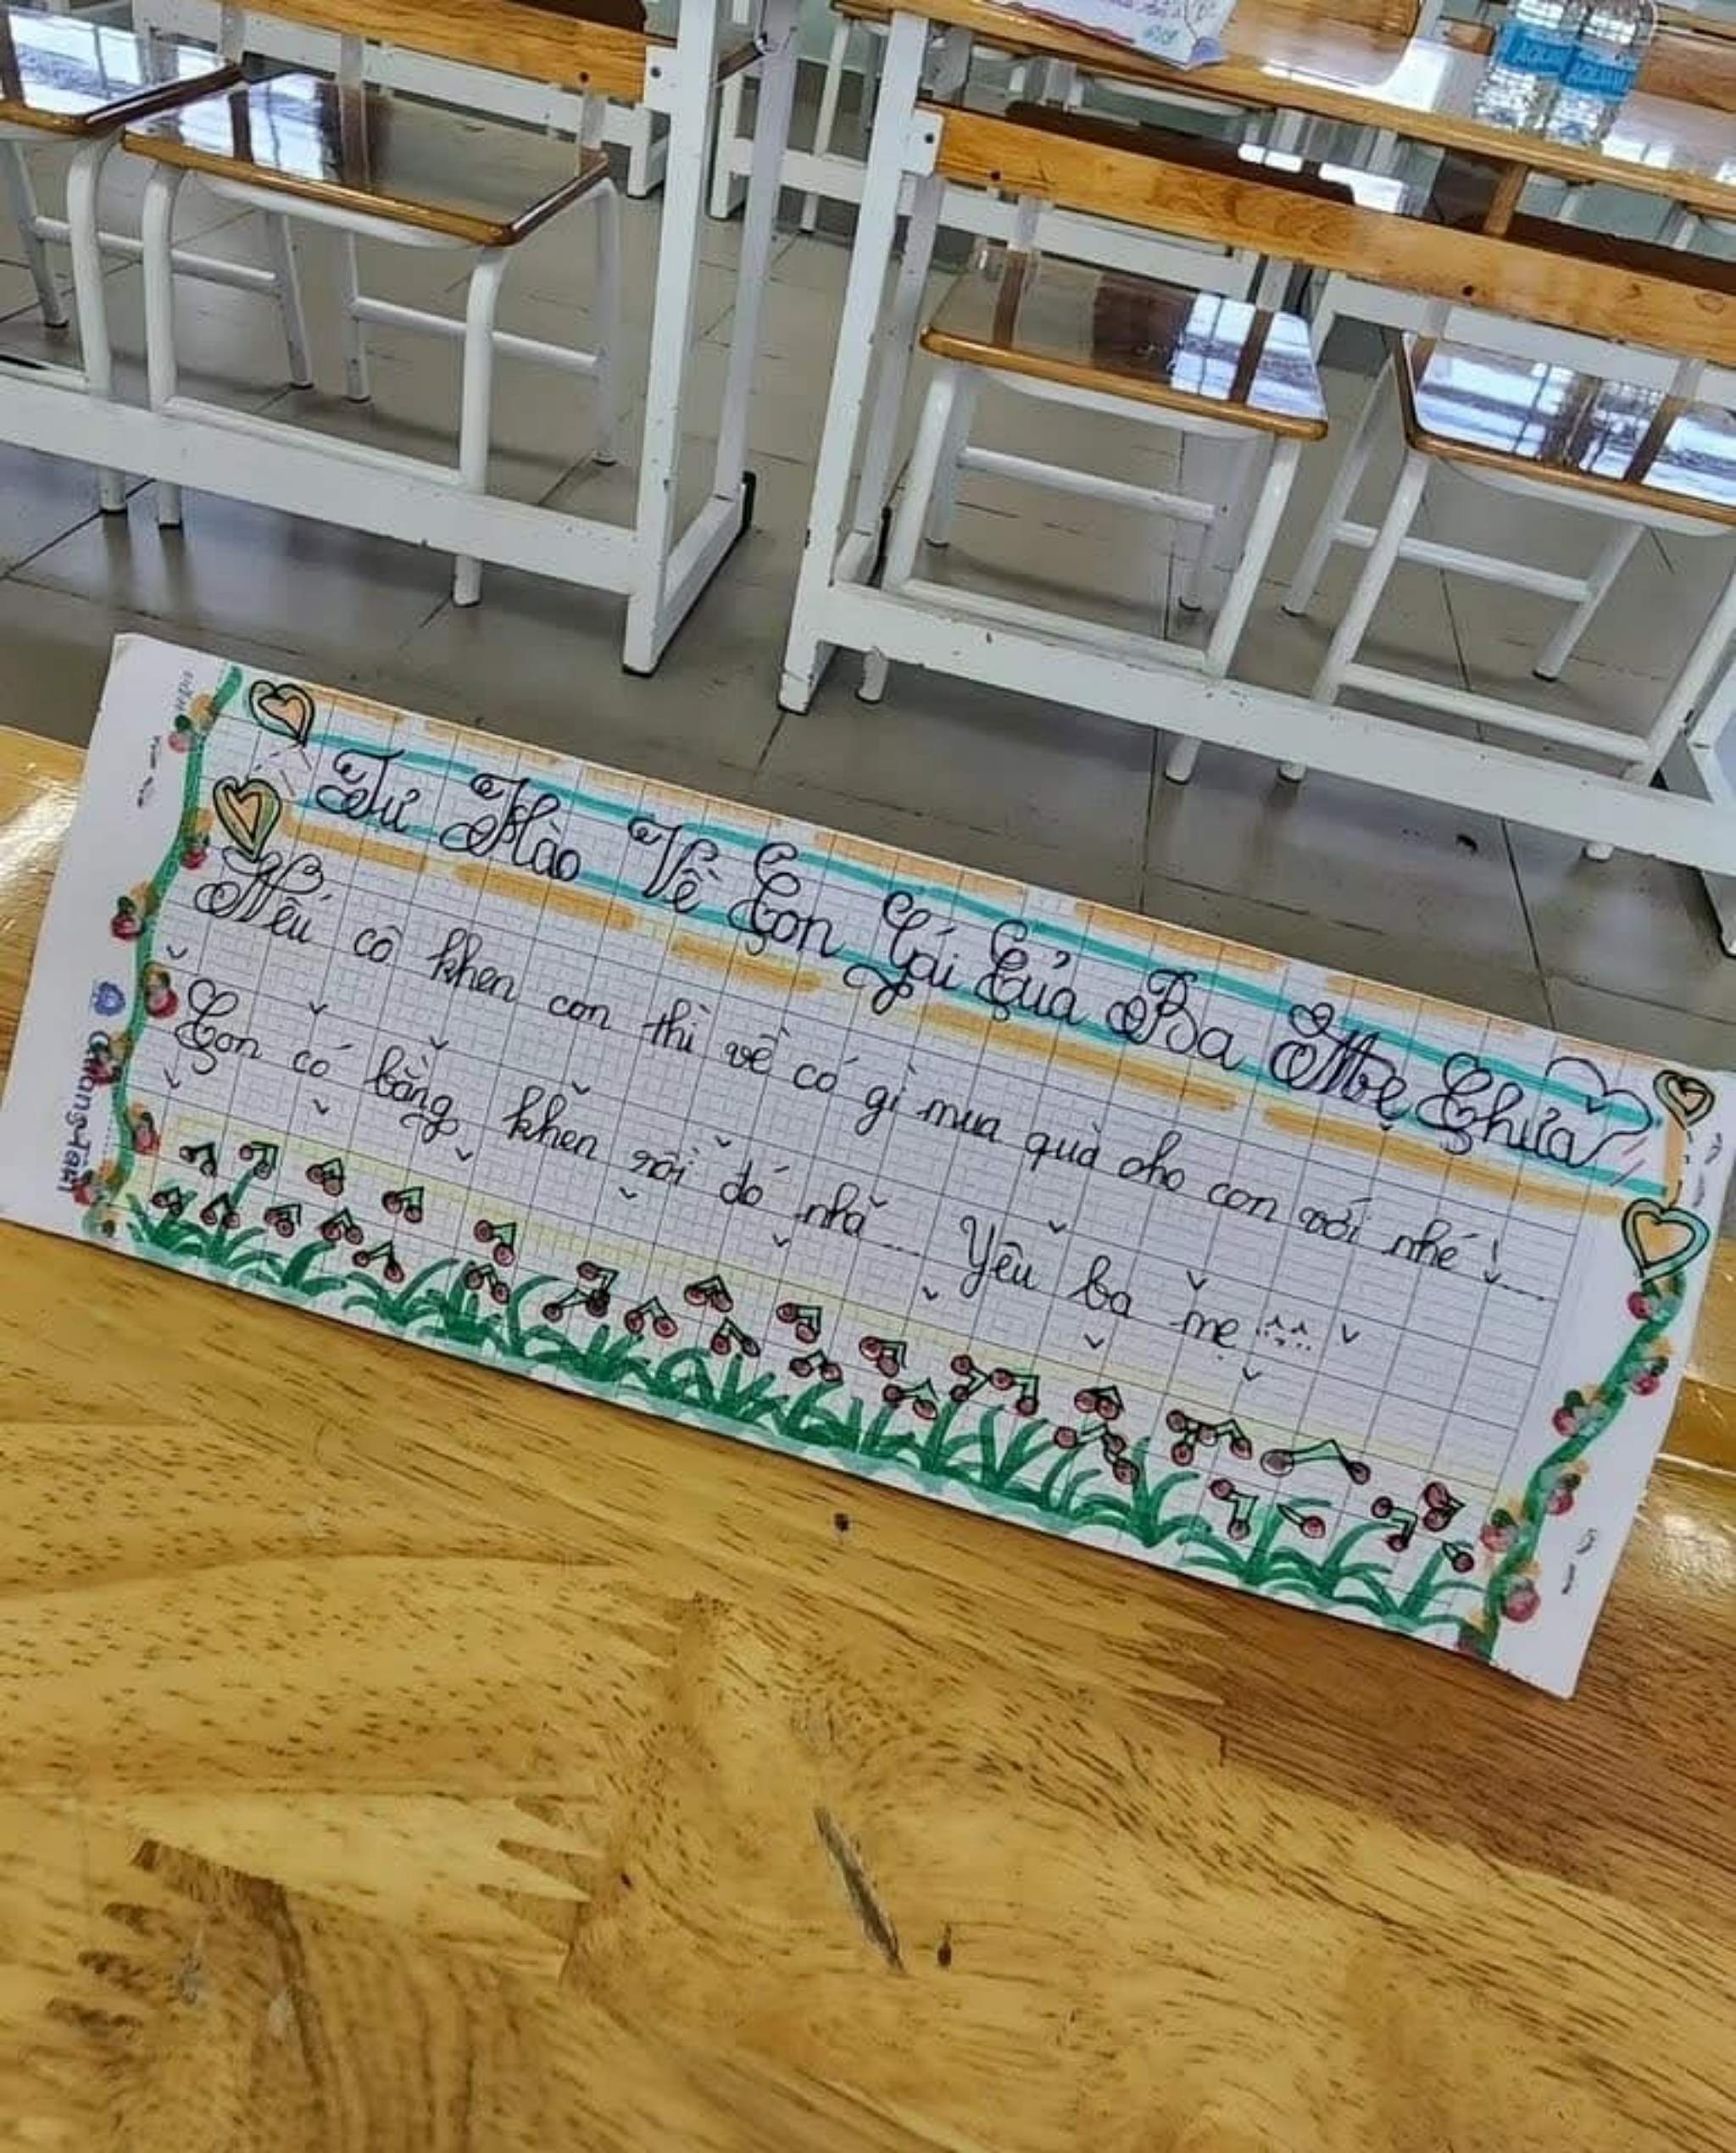 Tự Hào Về Con Gái Của Ba Mẹ Chưa
Nếu cô khen con thì về có gì mua quà cho con với nhé!....
Con có bằng khen rồi đó nha.... Yêu ba mẹ